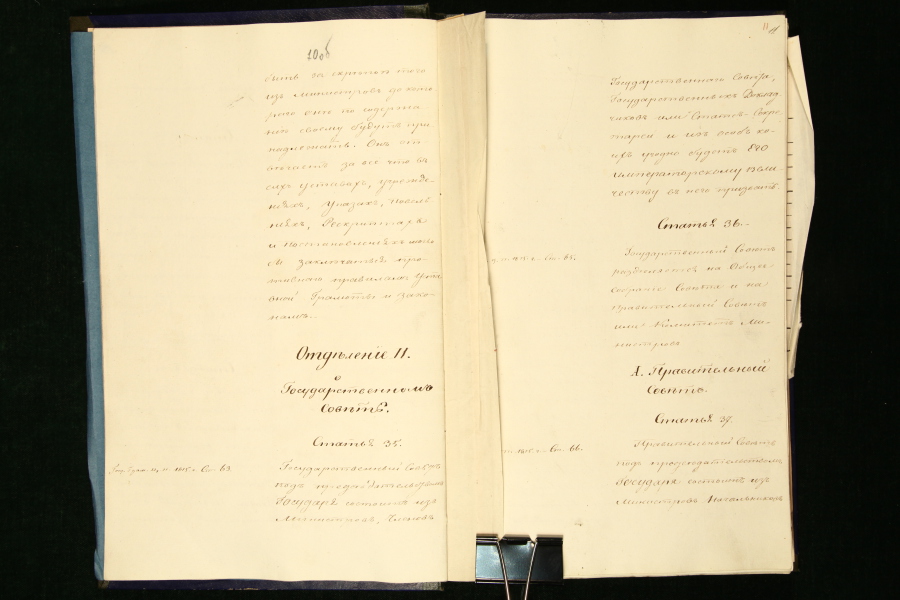 10об
быть за скрепою того
изъ Министровъ до кото
раго оно по содержа
нію своему будутъ при
надлежать. Онъ от
вѣчаетъ за все что въ
сихъ уставахъ, учрежде
ніяхъ, Указахъ, Повелѣ
ніяхъ, Рескриптахъ
и постановленіяхъ
заключаться про
тивнаго правиламъ Устав
ной Грамоты и зако
намъ.
Отдѣленіе II.
О
Государственномъ
Совѣтѣ.
Статья 35.
1815 г. Ст. 63.
Государственный Совѣтъ
подъ предсѣдательствомъ
Государя состоитъ изъ
Министровъ, Членовъ
11
Государственнаго Совѣта,
Государственныхъ Доклад
чиковъ или Статсъ-Секре
тарей и изъ особъ ко
ихъ угодно будетъ Его
Императорскому Вели
честву въ него призвать.
Статья 36.
1815 г. Ст. 65.
Государственный Совѣтъ
раздѣляется на Общее
собраніе Совѣта и на
Правительный Совѣтъ
или Комитетъ Ми
нистровъ
А. Правительный
Совѣтъ.
Статья 37.
1815 г. Ст. 66.
Правительный Совѣтъ
подъ предсѣдательствомъ
Государя состоитъ изъ
Министровъ Начальниковъ